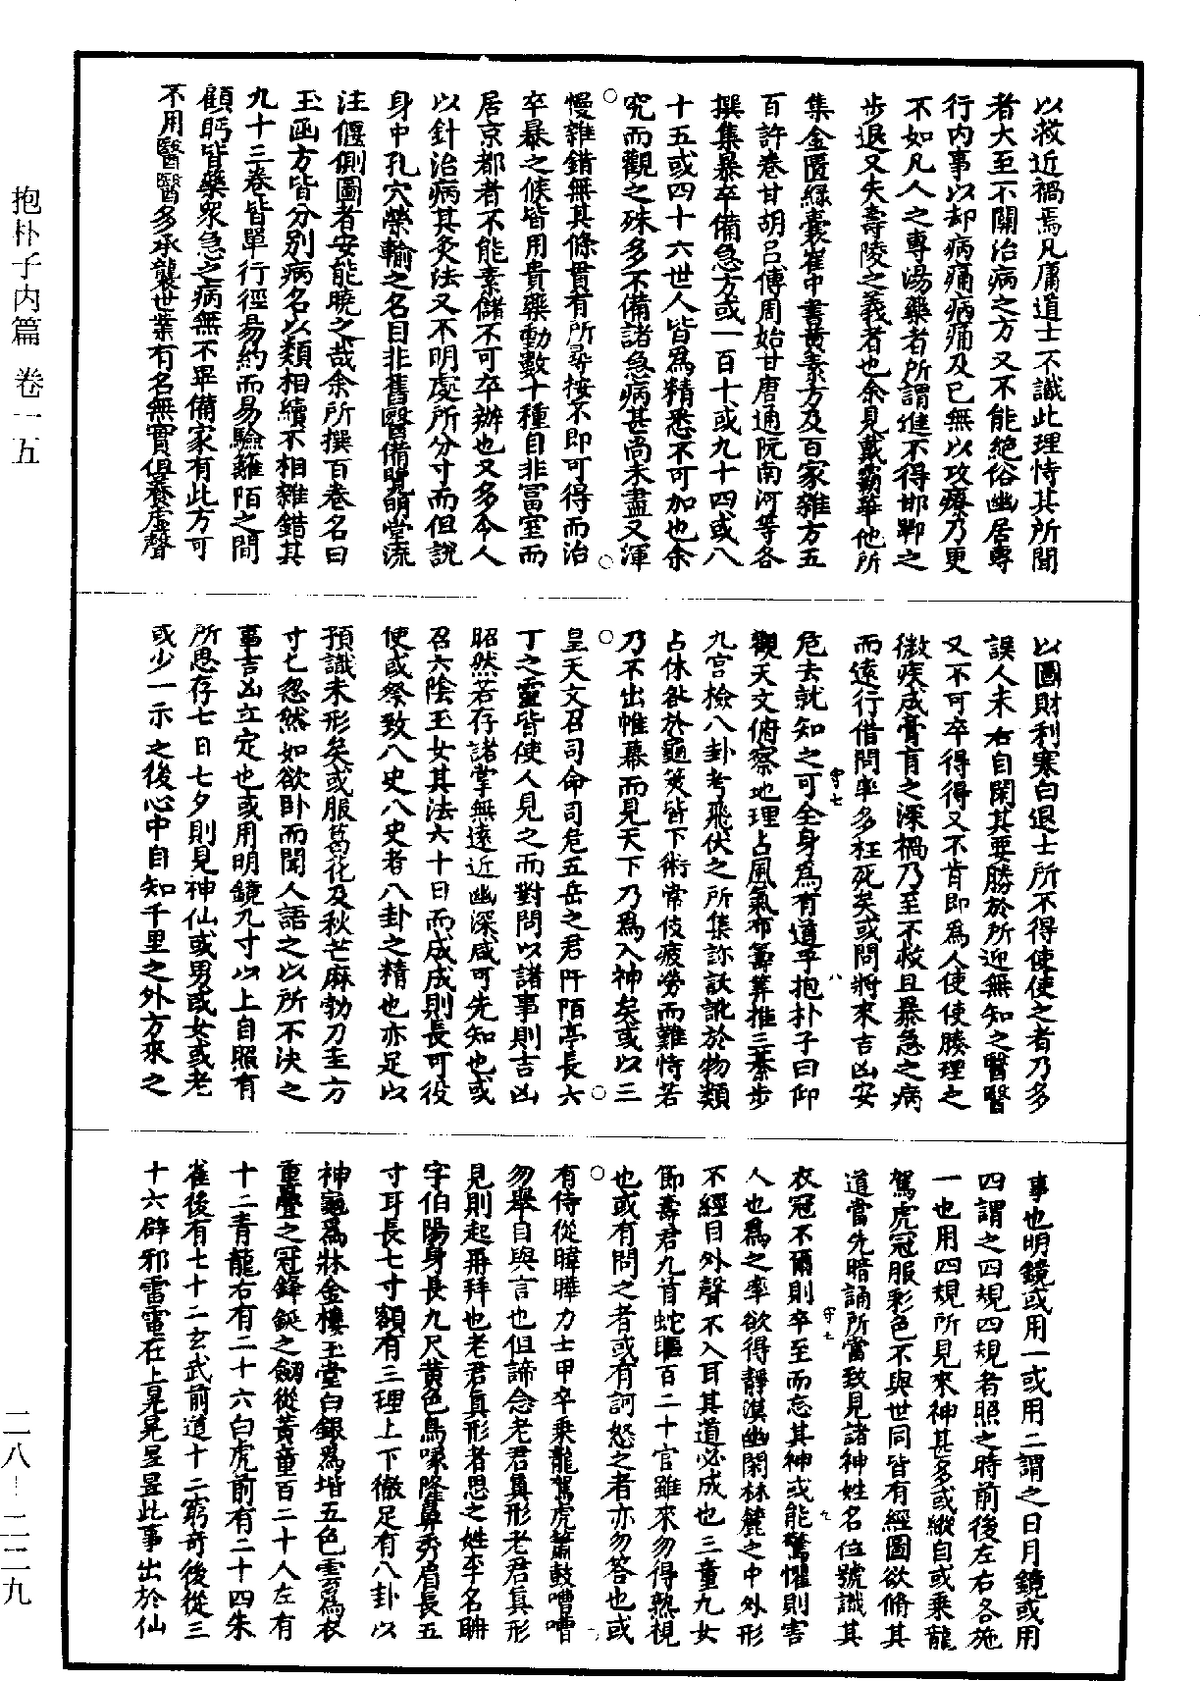 抱朴子内篇 卷一五
以救近禍焉凡庸道士不識此理恃其所聞
者大至不關治病之方又不能絶俗幽居專
行内事以却病痛病痛及已無以攻療乃更
不如凡人之專湯藥者所謂進不得邯鄲之
步退又失壽陵之義者也余見戴霸華他所
集金匱緑囊崔中書黃素方及百家雜方五
百許卷甘胡呂傳周始甘唐通阮南河等各
撰集暴卒備急方或一百十或九十四或八
十五或四十六世人皆爲精悉不可加也余
究而觀之殊多不備諸急病甚尚未盡又渾
慢雜錯無其條貫有所尋按不即可得而治
卒暴之候皆用貴藥動數十種自非富室而
居京都者不能素儲不可卒辦也又多令人
以針治病其灸法又不明處所分寸而但說
身中孔穴榮輸之名自非舊醫備覽明堂流
注偃側圖者安能曉之哉余所撰百卷名曰
玉函方皆分別病名以類相續不相雜錯其
九十三卷皆單行徑易約而易驗籬陌之間
顧眄皆藥衆急之病無不畢備家有此方可
不用醫醫多承襲世業有名無實但養虛聲
以圖財利寒白退士所不得使使之者乃多
誤人未右自閑其要勝於所迎無知之醫醫
又不可卒得得又不肯即爲人使使腠理之
微疾成膏肓之深禍乃至不救且暴急之病
而遠行借問率多枉死矣或問將來吉凶安
危去就知之可全身爲有道乎抱朴子曰仰
觀天文俯察地理占風氣布籌筭推三棊步
九宮檢八卦考飛伏之所集診訞訛於物類
占休咎於龜筴皆下術常伎疲勞而難恃若
乃不出帷幕而見天下乃爲入神矣或以三
皇天文召司命司危五岳之君阡陌亭長六
丁之靈皆使人見之而對問以諸事則吉凶
昭然若存諸掌無遠近幽深咸可先知也或
召六陰玉女其法六十日而成成則長可役
使或祭致八史八史者八卦之精也亦足以
預識未形矣或服葛花及秋芒麻勃刀圭方
寸匕忽然如欲卧而聞人語之以所不決之
事吉凶立定也或用明鏡九寸以上自照有
所思存七日七夕則見神仙或男或女或老
或少一示之後心中自知千里之外方來之
事也明鏡或用一或用二謂之日月鏡或用
四謂之四規四規者照之時前後左右各施
一也用四規所見來神甚多或縱自或乘龍
駕虎冠服彩色不與世同皆有經圖欲脩其
道當先暗誦所當致見諸神姓名位號識其
衣冠不爾則卒至而忘其神或能驚懼則害
人也爲之率欲得靜漠幽閑林麓之中外形
不經目外聲不入耳其道必成也三童九女
節壽君九首蛇軀百二十官雖來勿得熟視
也或有問之者或有訶怒之者亦勿答也或
有侍從暐曄力士甲卒乘龍駕虎簫鼓嘈嘈
勿舉自與言也但諦念老君真形老君真形
見則起再拜也老君真形者思之姓李名聃
字伯陽身長九尺黃色鳥喙隆鼻秀眉長五
寸耳長七寸額有三理上下徹足有八卦以
神龜爲牀金樓玉堂白銀爲堦五色雲爲衣
重疊之冠鋒鋋之劒從黃童百二十人左有
十二青龍右有二十六白虎前有二十四朱
雀後有七十二玄武前道十二窮奇後從三
十六辟邪雷電在上晃晃昱昱此事出於仙
守七
八
守七
九
二八—二二九